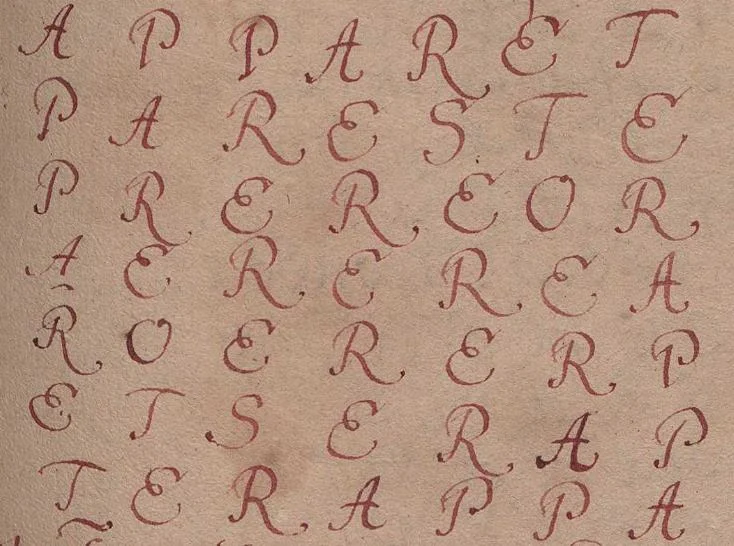 A P P A R E T
P A R E S T E
P R E R E O R
A E R E R E A
R O E R E R P
E T S E R A P
T E R A P P A